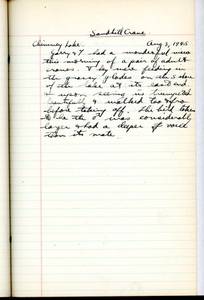 Sandhill Crane
Chimney Lake. Aug 3, 1945
Jerry & I had a wonderful view
this morning of a pair of adult
cranes. They were feeding in
the grassy glades on the S shore
of the lake at its east end
& upon seeing us trumpeted
beautifully & walked to & fro
before taking off. The bird taken
to be the ♂ was considerably
larger & had a deeper
than its mate.